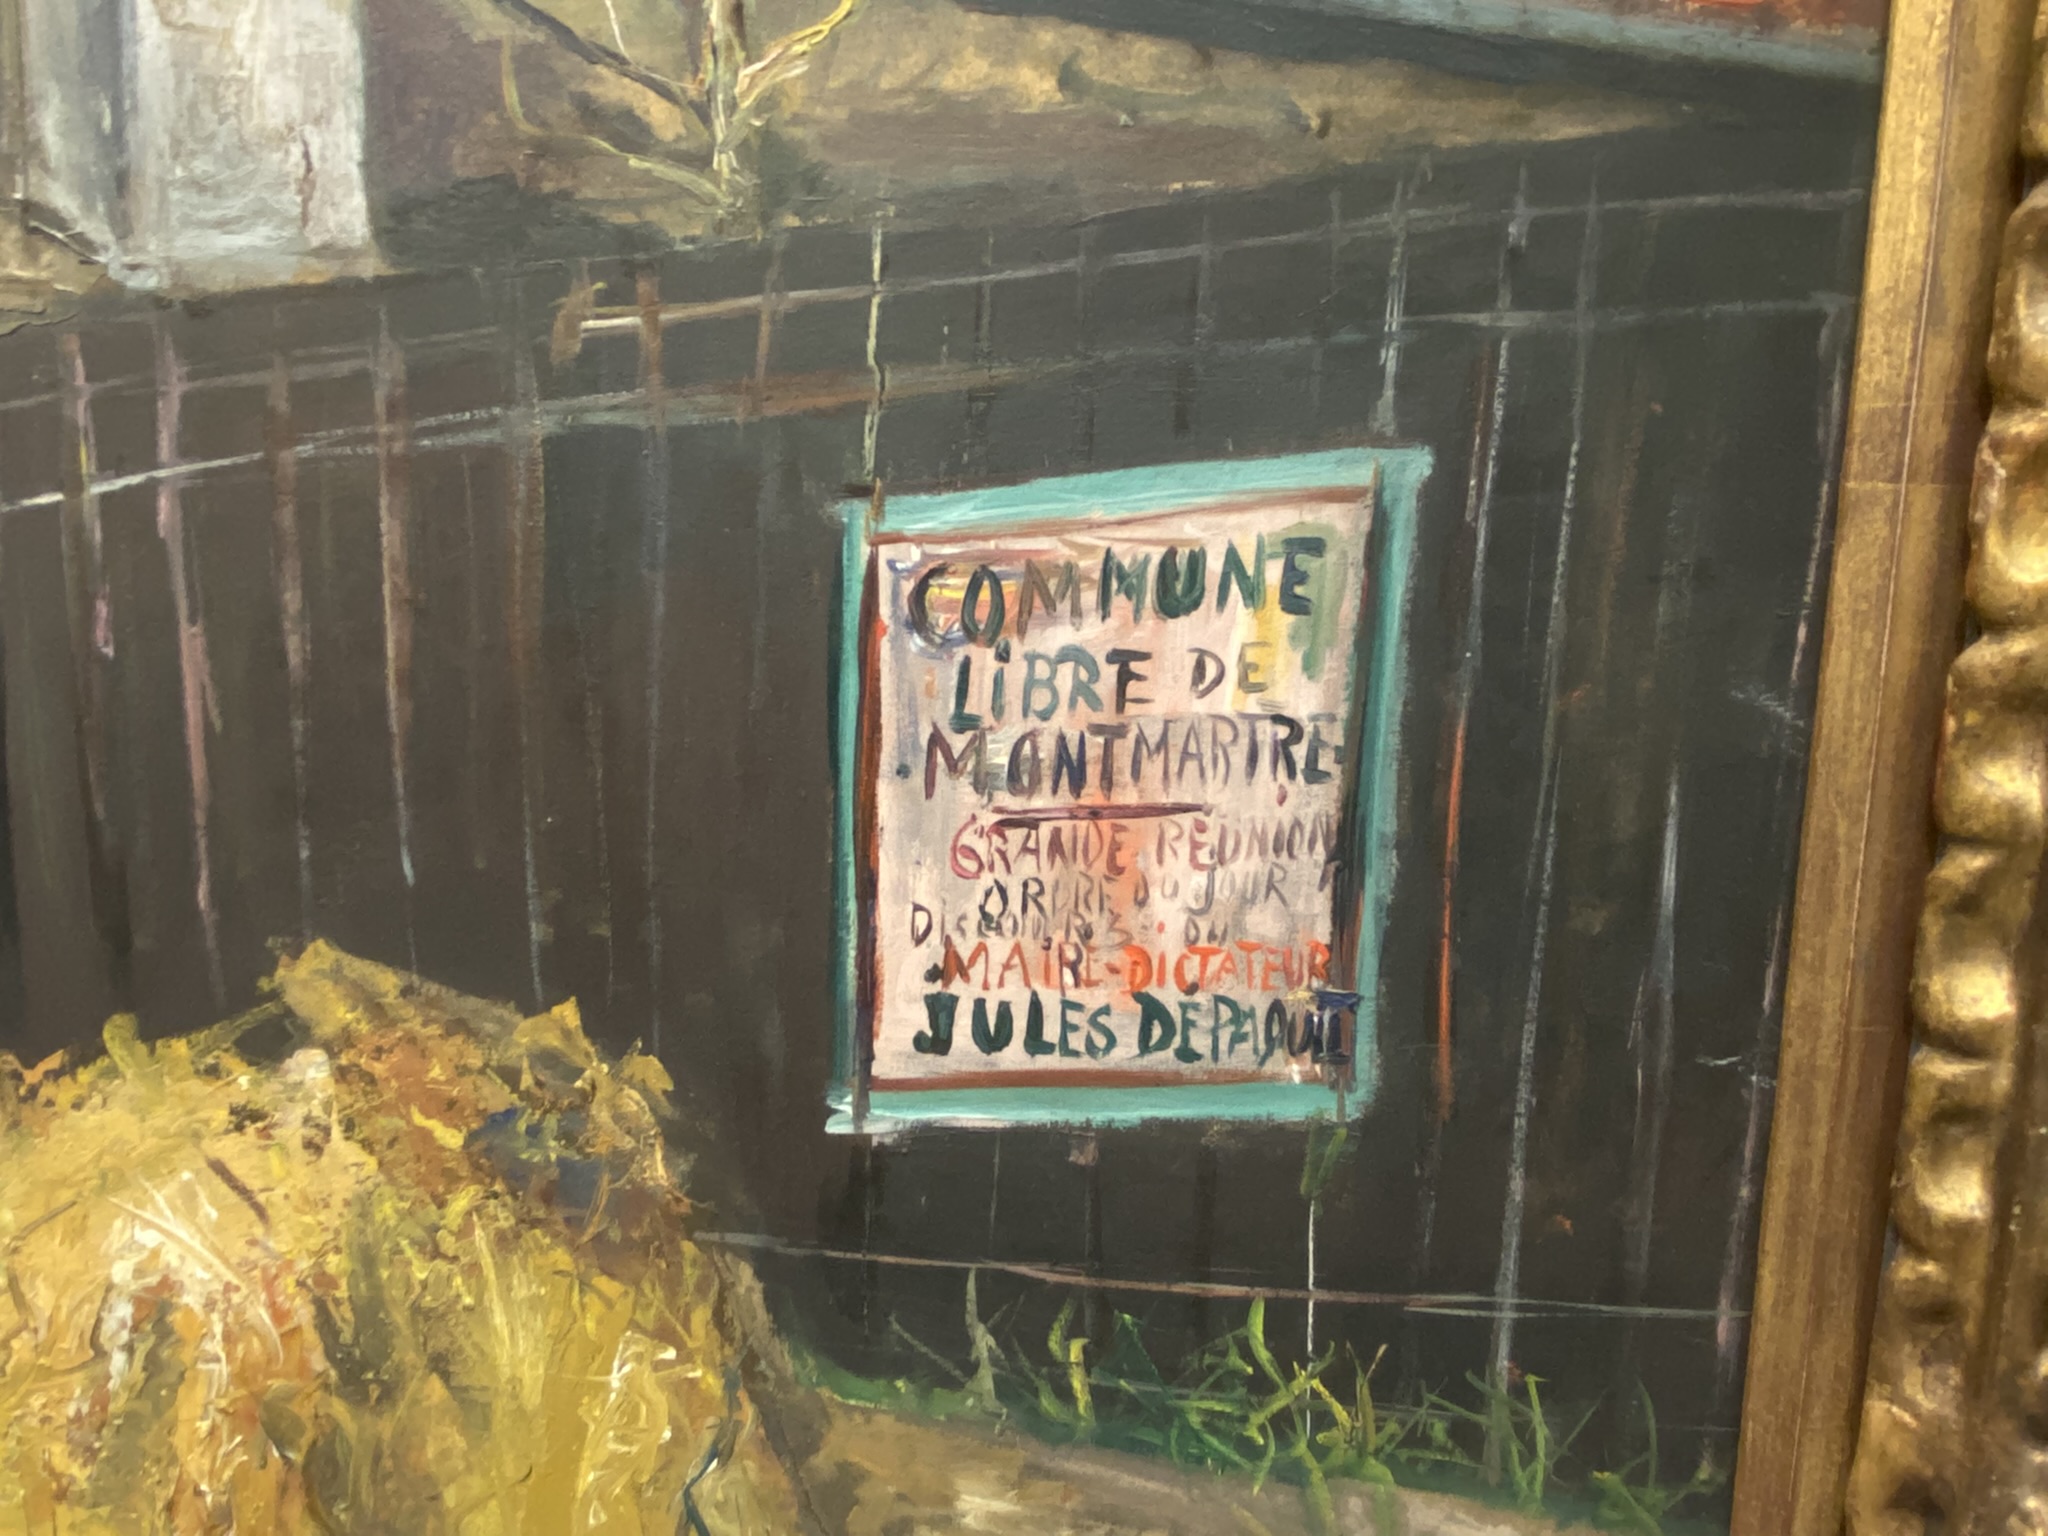 COMMUNE
LIBRE DE
MONTMARTRE
GRANDE REUNION
ORDRE DU JOUR
DISCOURS DU
MAIRE-DICTATEUR
JULES DÉPAQUIT